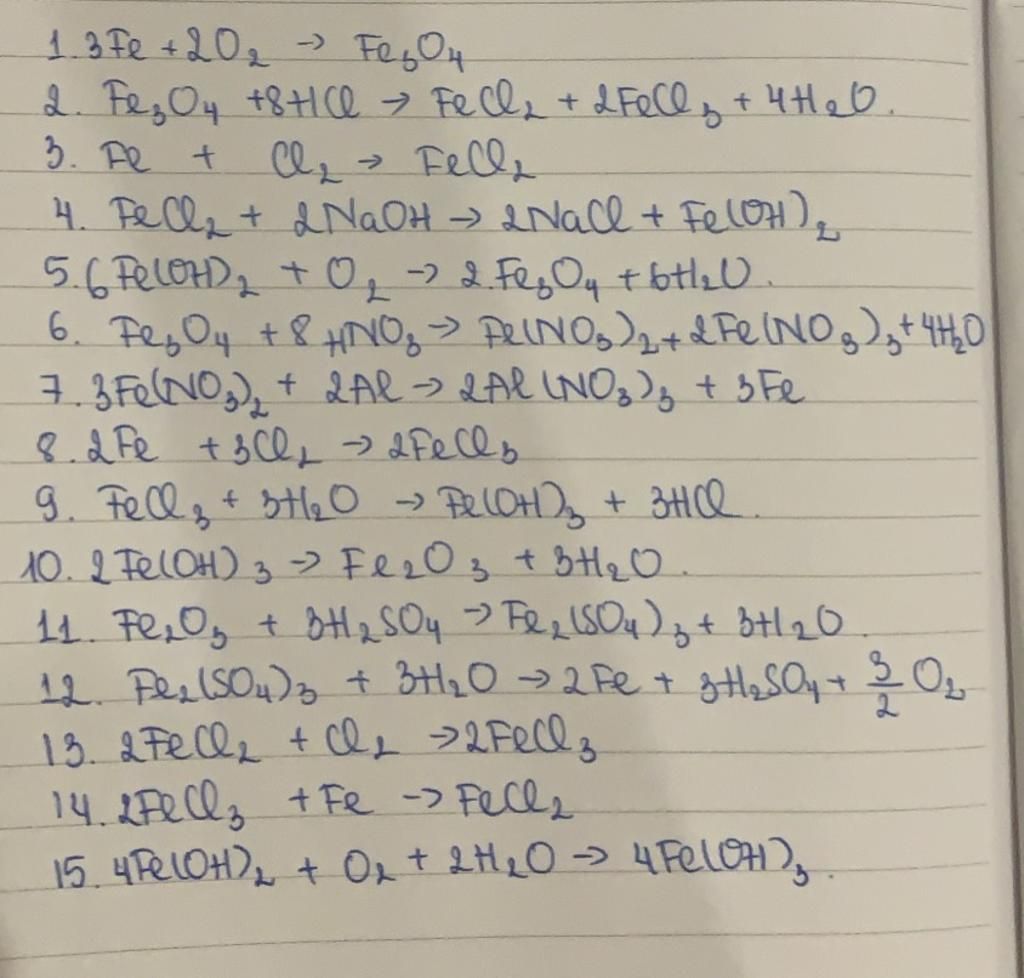 1. 3Fe + 2O₂ → Fe₃O₄
2. Fe₃O₄ + 8HCl → FeCl₂ + 2FeCl₃ + 4H₂O.
3. Fe + Cl₂ → FeCl₂
4. FeCl₂ + 2NaOH → 2NaCl + Fe(OH)₂
5. 6Fe(OH)₂ + O₂ → 2.Fe₃O₄ + 6H₂O.
6. Fe₃O₄ + 8HNO₃ → Fe(NO₃)₂ + 2Fe(NO₃)₃ + 4H₂O
7. 3Fe(NO₃)₂ + 2Al → 2Al(NO₃)₃ + 3Fe
8. 2Fe + 3Cl₂ → 2FeCl₃
9. FeCl₃ + 3H₂O → Fe(OH)₃ + 3HCl.
10. 2Fe(OH)₃ → Fe₂O₃ + 3H₂O.
11. Fe₂O₃ + 3H₂SO₄ → Fe₂(SO₄)₃ + 3H₂O.
12. Fe₂(SO₄)₃ + 3H₂O → 2Fe + 3H₂SO₄ + 3/2 O₂
13. 2FeCl₂ + Cl₂ → 2FeCl₃
14. 2FeCl₃ + Fe → FeCl₂
15. 4Fe(OH)₂ + O₂ + 2H₂O → 4Fe(OH)₃.